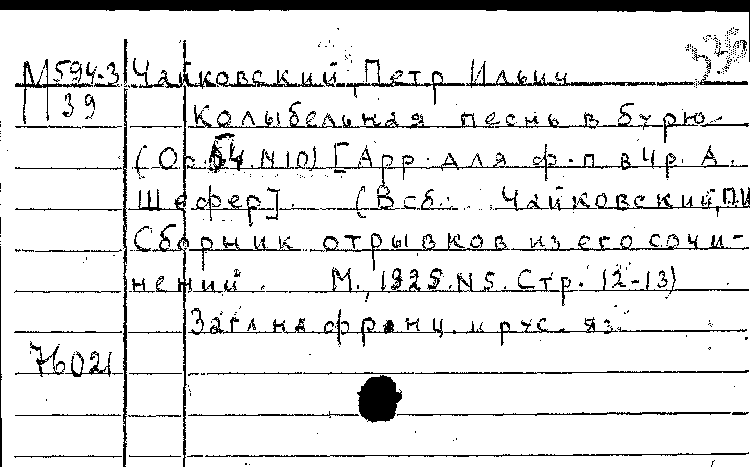 336
М594-3 Чайковский, Петр Ильич
П39 Колыбельная песнь в бурю
(Op. 54. N 10) [Арр. для ф.-п. в 4 р. А.
Шефер]. (В сб.: Чайковский, П.И
Сборник отрывков из его сочи-
нений. М., 1925. N 5. Стр. 12-13)
Загл на франц. и рус. яз.
76021